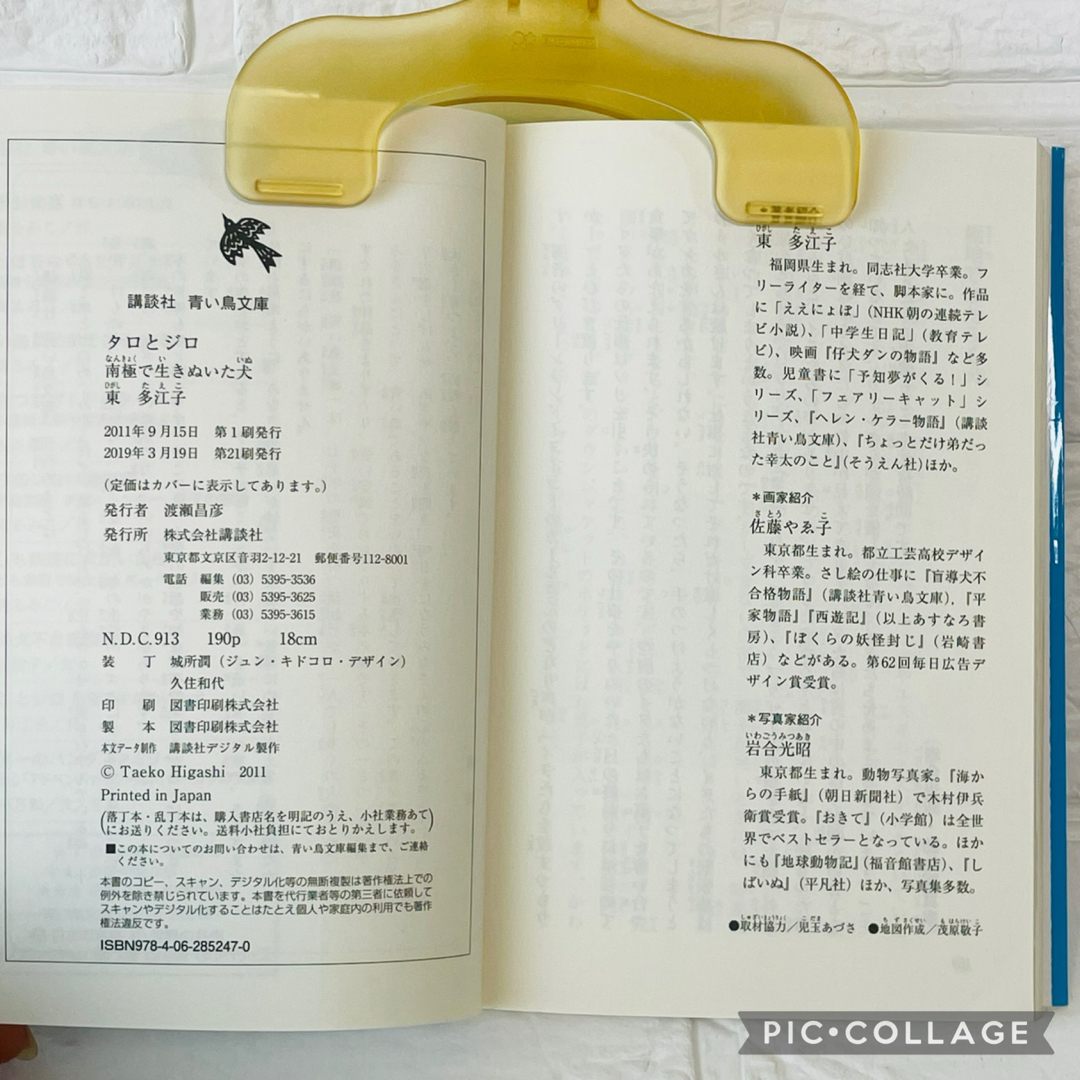 講談社 青い鳥文庫
タロとジロ
なんきょく い いぬ
南極で生きぬいた犬
ひがし た え こ
東 多江子
2011年9月15日 第1刷発行
2019年3月19日 第21刷発行
(定価はカバーに表示してあります。)
発行者 渡瀬昌彦
発行所 株式会社講談社
東京都文京区音羽2-12-21 郵便番号112-8001
電話 編集 (03) 5395-3536
販売 (03) 5395-3625
業務 (03) 5395-3615
N.D.C.913 190p 18cm
装 丁 城所潤(ジュン・キドコロ・デザイン)
久住和代
印 刷 図書印刷株式会社
製 本 図書印刷株式会社
本文データ制作 講談社デジタル製作
© Taeko Higashi 2011
Printed in Japan
(落丁本・乱丁本は、購入書店名を明記のうえ、小社業務あて
にお送りください。送料小社負担にておとりかえします。)
■この本についてのお問い合わせは、青い鳥文庫編集まで、ご連絡
ください。
本書のコピー、スキャン、デジタル化等の無断複製は著作権法上での
例外を除き禁じられています。本書を代行業者等の第三者に依頼して
スキャンやデジタル化することはたとえ個人や家庭内の利用でも著作
権法違反です。
ISBN978-4-06-285247-0
ひがし た え こ
東 多江子
福岡県生まれ。同志社大学卒業。フ
リーライターを経て、脚本家に。作品
に「ええにょぼ」(NHK朝の連続テレ
ビ小説)、「中学生日記」(教育テレ
ビ)、映画『仔犬ダンの物語』など多
数。児童書に「予知夢がくる!」シ
リーズ、「フェアリーキャット」シ
リーズ、『ヘレン・ケラー物語』(講談
社青い鳥文庫)、『ちょっとだけ弟だっ
た幸太のこと』(そうえん社)ほか。
*画家紹介
さ とう こ
佐藤やゑ子
東京都生まれ。都立工芸高校デザイ
ン科卒業。さし絵の仕事に『盲導犬不
合格物語』(講談社青い鳥文庫)、『平
家物語』『西遊記』(以上あすなろ書
房)、『ぼくらの妖怪封じ』(岩崎書
店)などがある。第62回毎日広告デ
ザイン賞受賞。
*写真家紹介
いわごうみつあき
岩合光昭
東京都生まれ。動物写真家。『海か
らの手紙』(朝日新聞社)で木村伊兵
衛賞受賞。『おきて』(小学館)は全世
界でベストセラーとなっている。ほか
にも『地球動物記』(福音館書店)、『し
ばいぬ』(平凡社)ほか、写真集多数。
しゅざいきょうりょく こ だま ち ず さくせい も はらけい こ
●取材協力/児玉あづさ ●地図作成/茂原敬子
PIC•COLLAGE